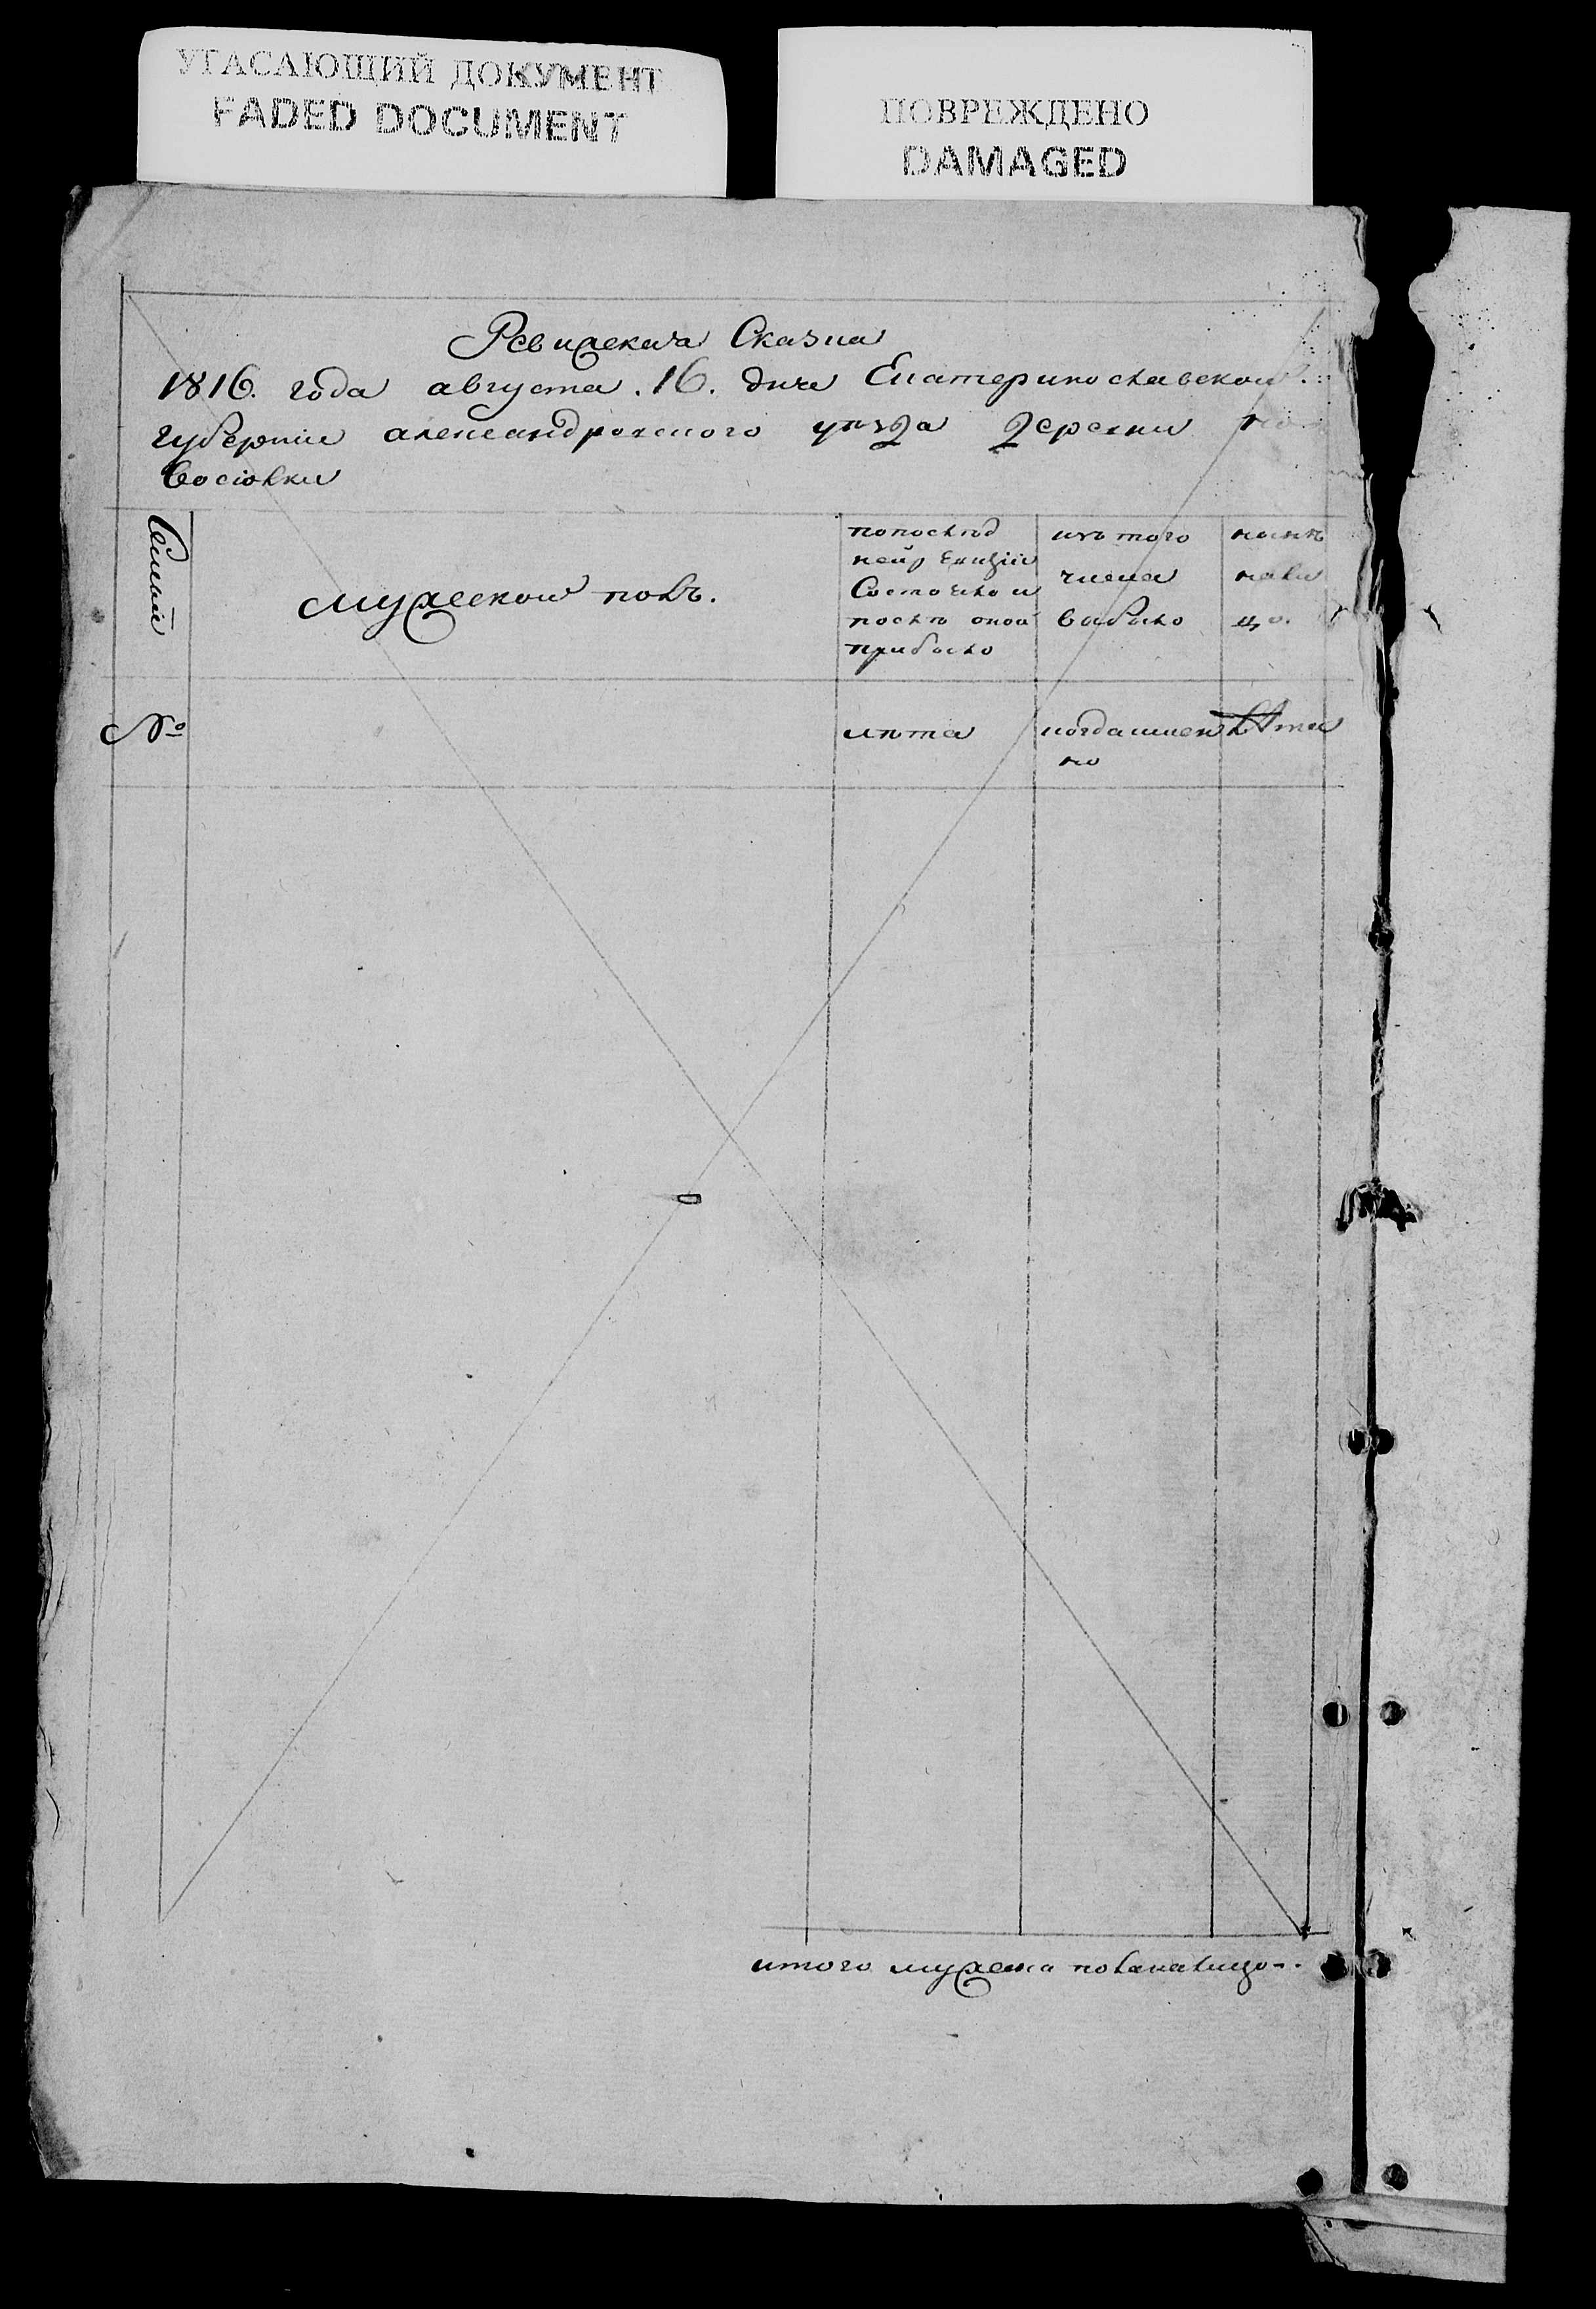 УГАСАЮЩИЙ ДОКУМЕНТ
FADED DOCUMENT
ПОВРЕЖДЕНО
DAMAGED
Ревижская Сказка
1816. года августа. 16. дня Екатеринославской
губернии александровского уезда деревни но
восіовки
Семьи
мужеской полъ.
по послѣд
ней ревизіи
Состояло и
послѣ оной
прибыло
изъ того
числа
выбыло
нынѣ
нали
цо.
№
лѣта
когда имен
но
лѣта
итого мужеска пола налицо